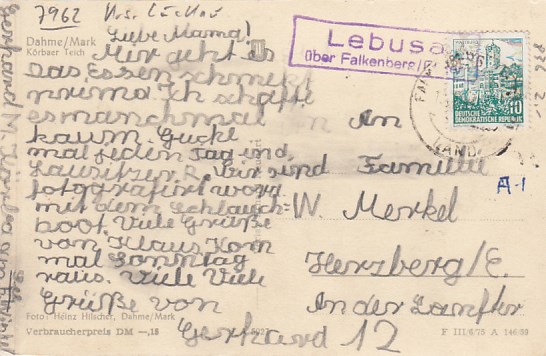 7962 Krs. Luckau
Dahme/Mark
Körbaer Teich
Liebe Mama!
Mir geht es
Das Essen schmekt
prima. Ich schaffe
es manchmal
kaum. Gucke
mal jeden Tag und
Lausitzer R. Wir sind
fotografiert word
mit dem Schlauch-
boot. Viele Grüße
von Klaus Kom
mal Sonntag
raus. Viele Viele
Grüße von
Gerhard
Lebusa
über Falkenberg/E
DEUTSCHE
DEMOKRATISCHE REPUBLIK
10
An
Familie
W. Merkel
Herzberg/E.
An der Lanfter
12
A-1
Gerhard M. Körba am
Foto: Heinz Hilscher, Dahme/Mark
Verbraucherpreis DM —,15
F III/6/75 A 146/59